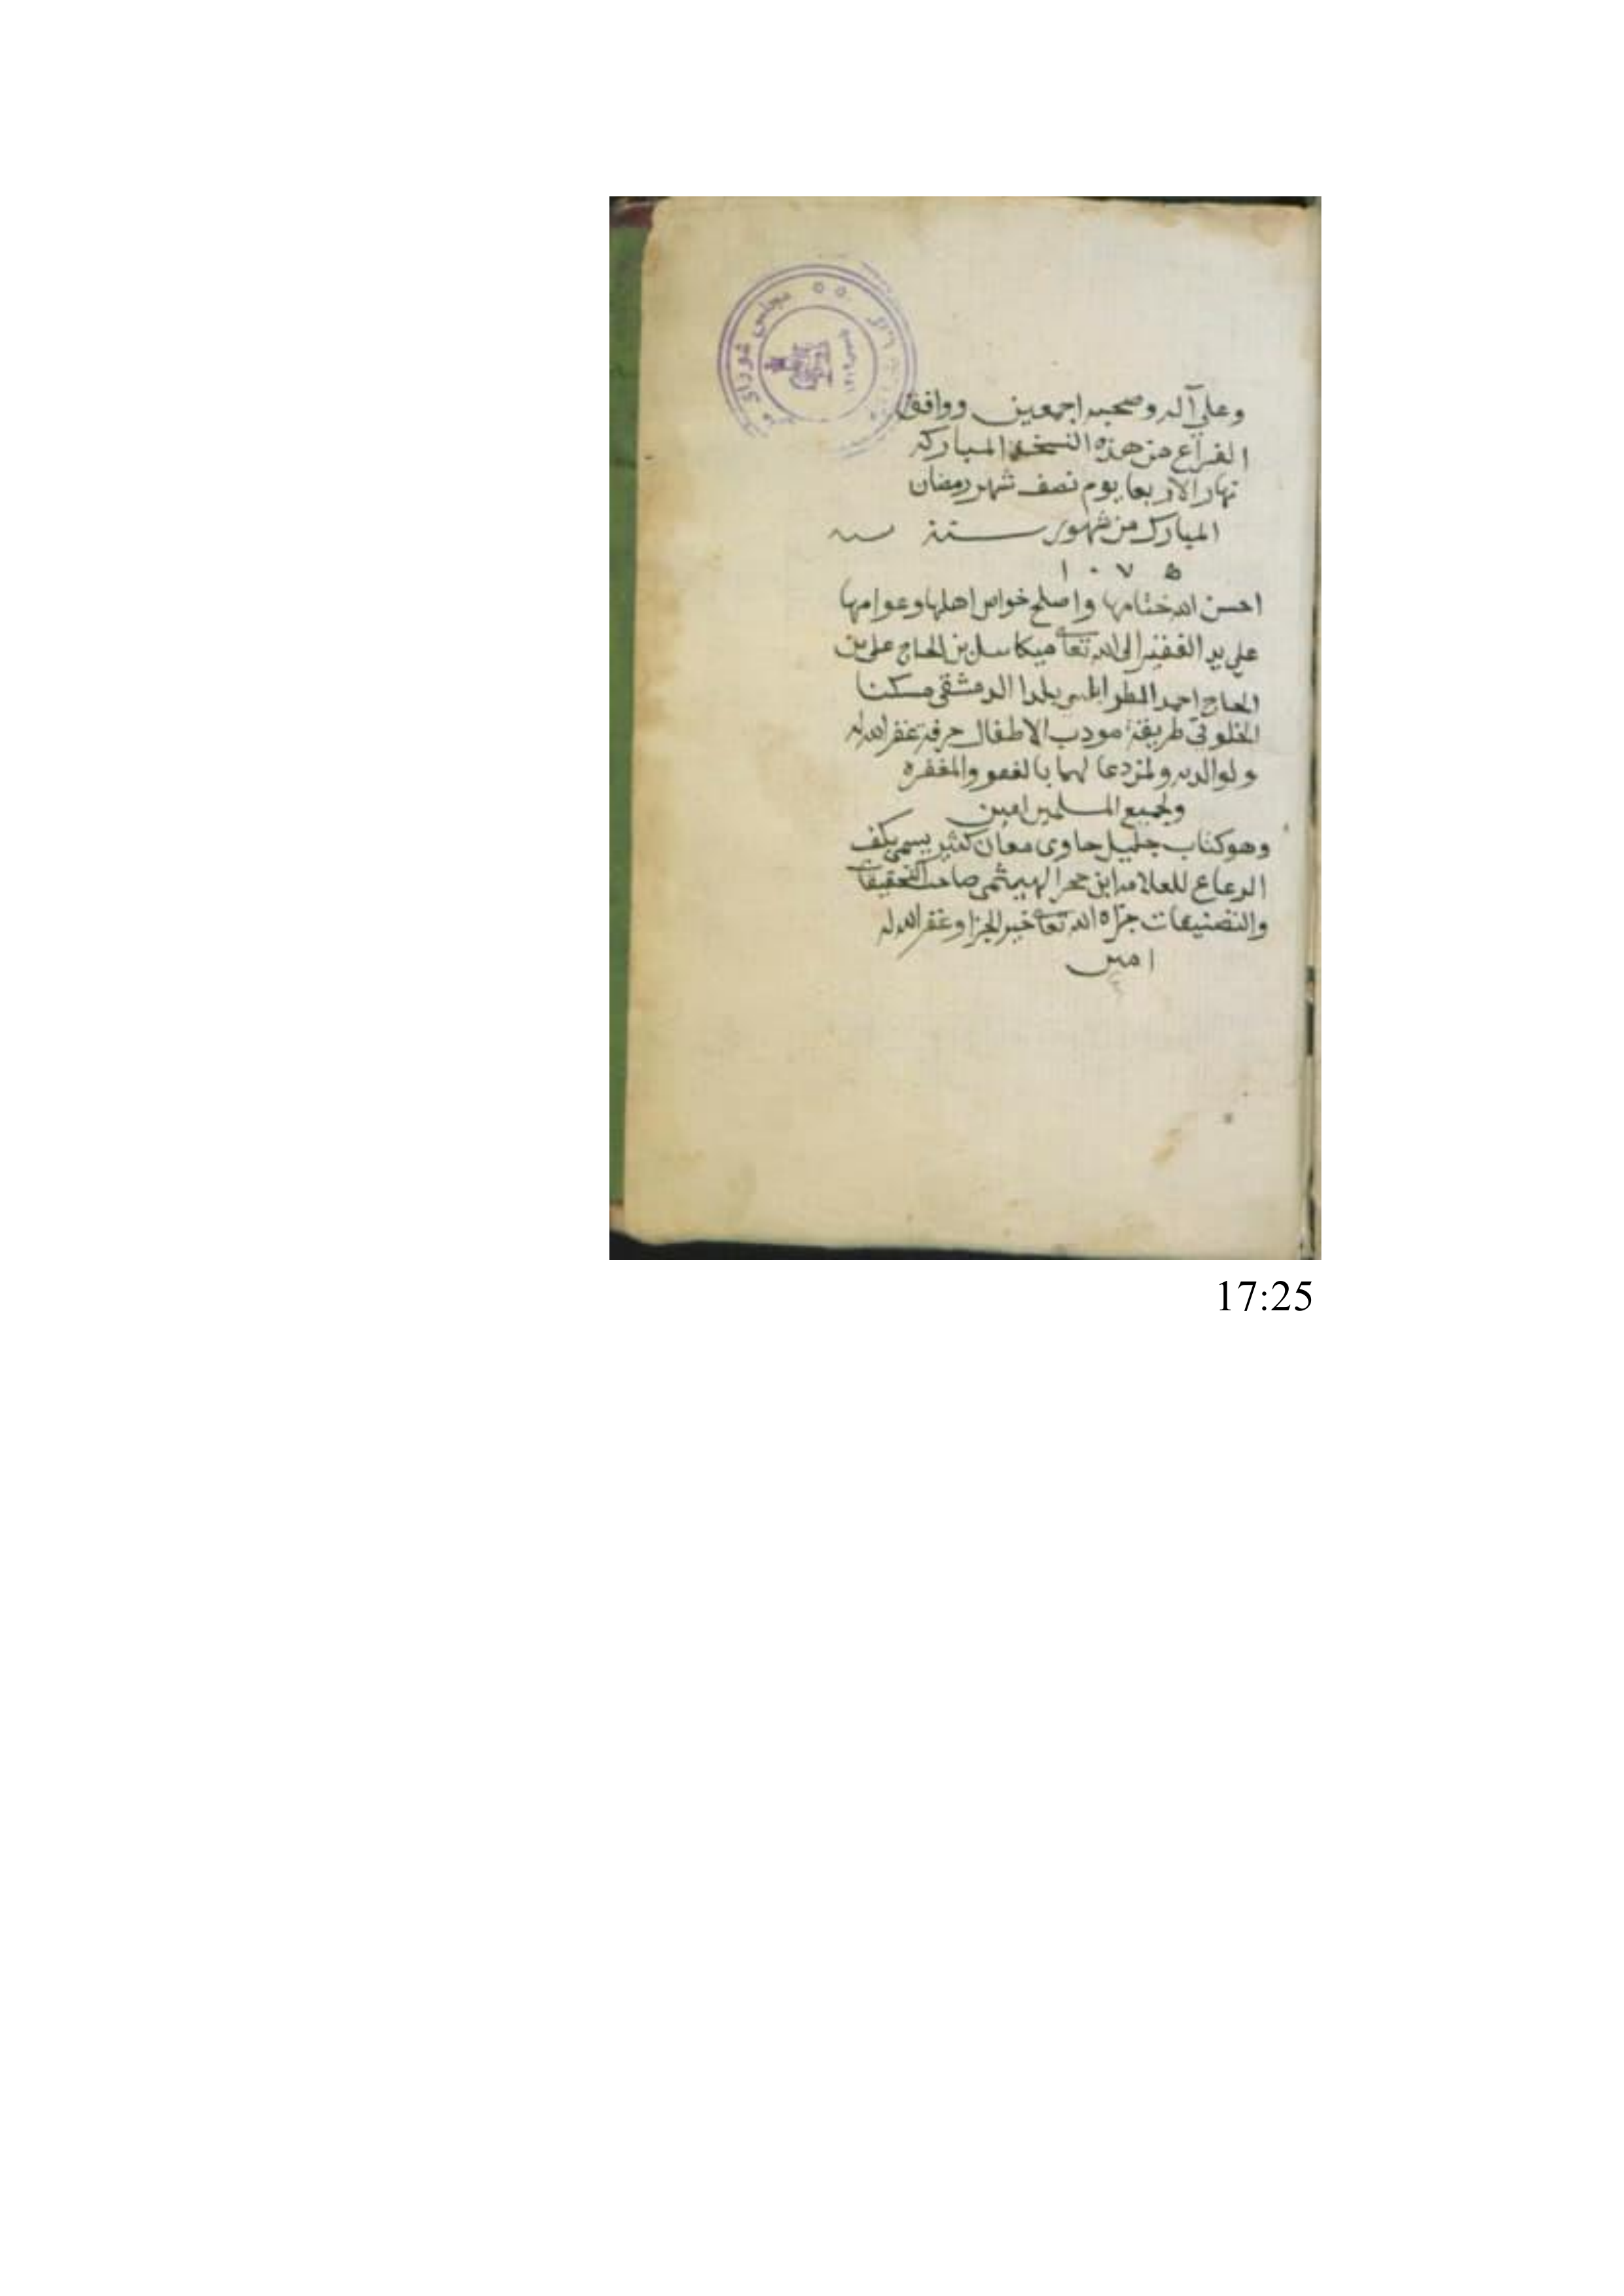 مجلس شورای
وعلي آله وصحبه اجمعين ووافق
الفراغ من هذه النسخة المباركه
نهار الاربعا يوم نصف شهر رمضان
المبارك من شهور سنة
١٠٧٥
احسن الله ختامها واصلح خواص اهلها وعوامها
علي يد الفقير الى الله تعالى ميكاسل بن الحاج على بن
الحاج احمد الطرابلسي بلدا الدمشقي مسكنا
الخلوتي طريقة مودب الاطفال حرفة غفر الله له
ولوالديه ولمن دعا لهما بالعفو والمغفره
ولجميع المسلمين امين
وهو كتاب جليل حاوى معان كثير يسمى بكف
الرعاع للعلامه ابن حجر الهيثمي صاحب التحقيقات
والتصنيفات جزاه الله تعالى خير الجزا وغفر الله له
امين
17:25